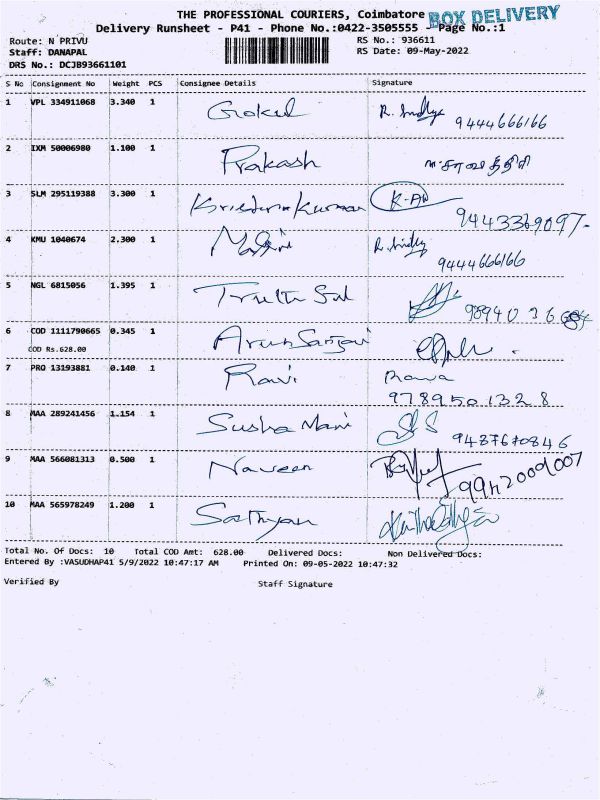 THE PROFESSIONAL COURIERS, Coimbatore BOX DELIVERY
Delivery Runsheet - P41 - Phone No.:0422-3505555 Page No.:1
Route: N PRIVU RS No.: 936611
Staff: DANAPAL RS Date: 09-May-2022
DRS No.: DCJB93661101
S No Consignment No Weight PCS Consignee Details Signature
1 VPL 334911068 3.340 1 Gokul
9444666166
2 IXM 50006980 1.100 1 Prakash
3 SLM 295119388 3.300 1 Krishna Kumar
9443369097
4 KMU 1040674 2.300 1
9444666166
5 NGL 6815056 1.395 1
6 COD 1111790665 0.345 1 Arun Sanjai
COD Rs.628.00
7 PRO 13193881 0.140 1 Ravi
9789501328
8 MAA 289241456 1.154 1 Susha Mani
9487670846
9 MAA 566081313 0.500 1 Naveen
10 MAA 565978249 1.200 1 Sathyan
Total No. Of Docs: 10 Total COD Amt: 628.00 Delivered Docs: Non Delivered Docs:
Entered By :VASUDHAP41 5/9/2022 10:47:17 AM Printed On: 09-05-2022 10:47:32
Verified By Staff Signature